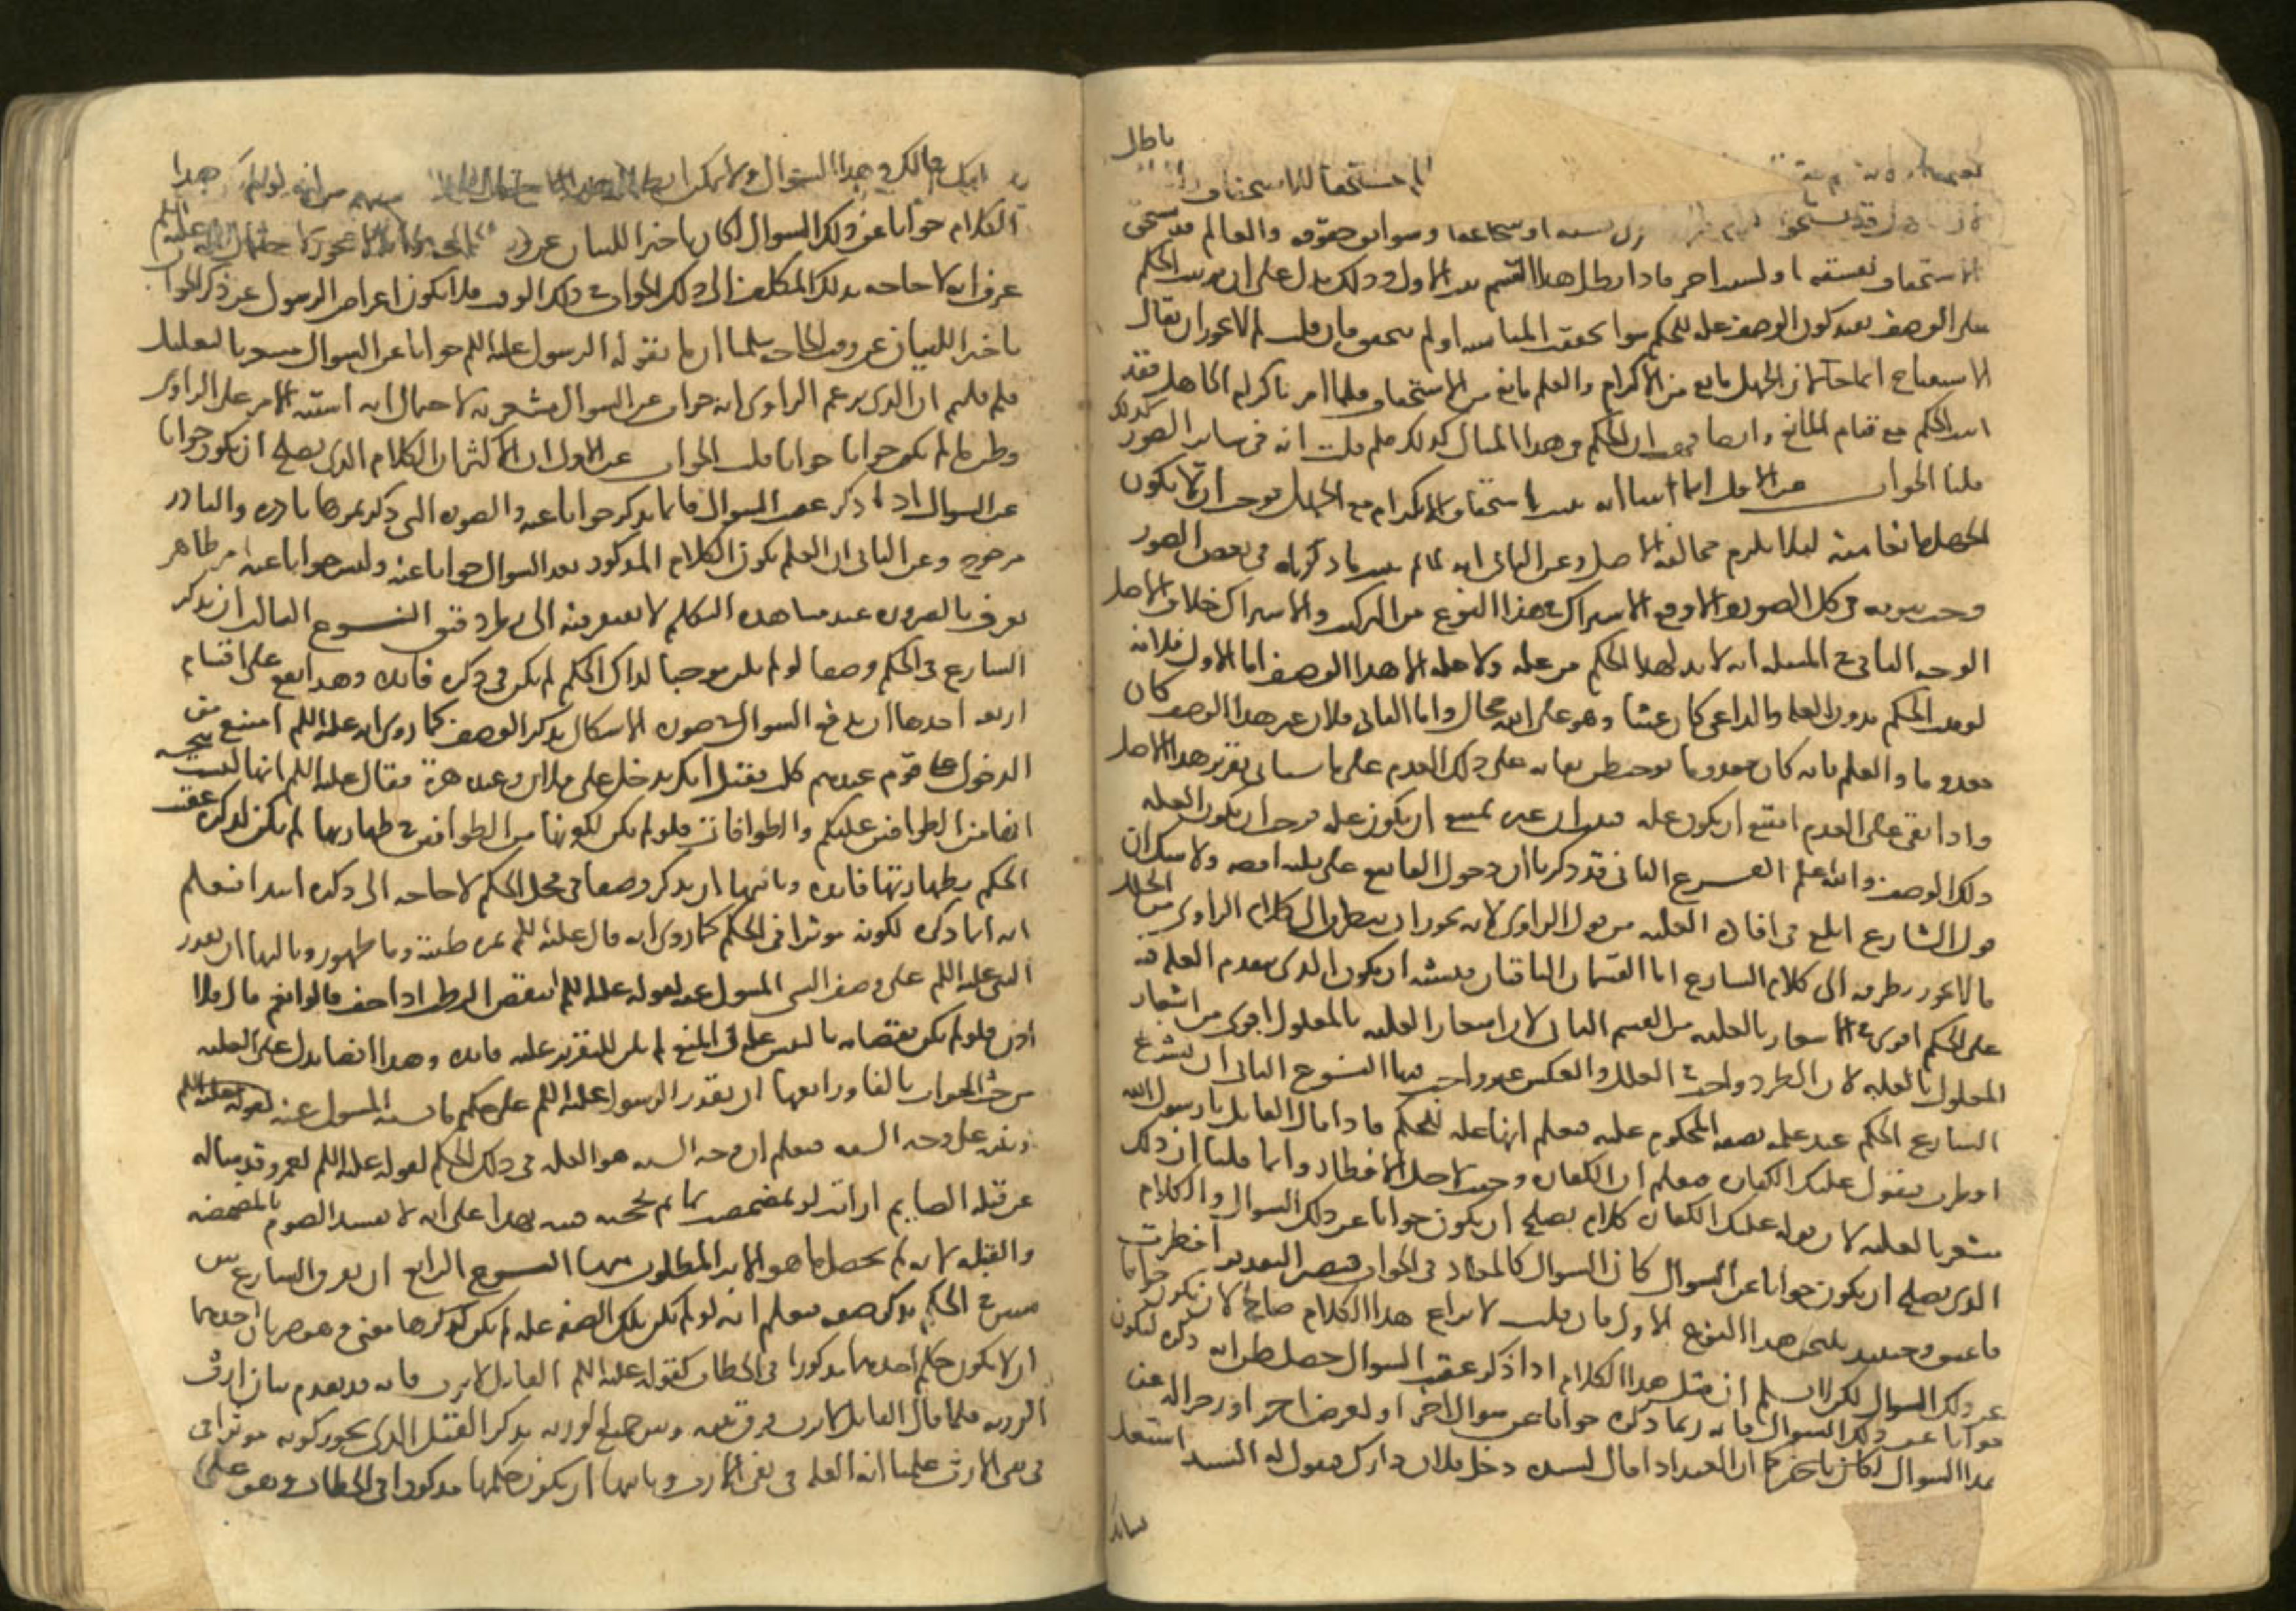 باطل
مستحقا للاستحقاق
قد يستحق نسبه او شجاعته وسوابق حقوقه والعالم قد يستحق
الاستخفاف لفسقه او لسبب اخر فاذا بطل هذا القسم ثبت الاول وذلك يدل على ان ترتيب الحكم
على الوصف يفيد كون الوصف علة للحكم سوا تحققت المناسبة او لم تتحقق فان قلت لم لا يجوز ان يقال
الاستقباح انما جا لان الجهل مانع من الاكرام والعلم مانع من الاستخفاف فلما امر باكرام الجاهل فقد
اثبت الحكم مع قيام المانع وايضا فهب ان الحكم في هذا المثال كذلك فلم قلت انه في سائر الصور كذلك
قلنا الجواب عن الاول انما اثبتنا انه يثبت استحقاق الاكرام مع الجهل فوجب ان لا يكون
الجهل مانعا منه لئلا يلزم مخالفة الاصل وعن الثاني انه لما ثبت ما ذكرناه في بعض الصور
وجب ثبوته في كل الصور والا وقع الاشتراك في هذا النوع من التركيب والاشتراك خلاف الاصل
الوجه الثاني في المسئلة انه لا بد لهذا الحكم من علة ولا علة الا هذا الوصف اما الاول فلانه
لو ثبت الحكم بدون العلة والداعي كان عبثا وهو على الله محال واما الثاني فلان غير هذا الوصف كان
معدوما والعلم بانه كان معدوما يوجب ظن بقائه على ذلك العدم على ما سياتي تقرير هذا الاصل
واذا بقي على العدم امتنع ان يكون علة فثبت ان غيره يمتنع ان يكون علة فوجب ان يكون العلة
ذلك الوصف والله اعلم الفرع الثاني قد ذكرنا ان دخول الفا يقع على ثلثه اوجه ولا شك ان
قول الشارع ابلغ في افادة العلية من قول الراوي لانه يجوز ان يتطرق الى كلام الراوي من الخلل
ما لا يجوز تطرقه الى كلام الشارع اما القسمان الباقيان فيشبه ان يكون الذي يتقدم العلة فيه
على الحكم اقوى في الاشعار بالعلية من القسم الثاني لان اشعار العلة بالمعلول اقوى من اشعار
المعلول بالعلة لان الطرد واجب في العلل والعكس غير واجب فيها النوع الثاني ان يشرع
الشارع الحكم عند علمه بصفة المحكوم عليه فيعلم انها علة للحكم فاذا قال القائل يا رسول الله
افطرت فيقول عليك الكفارة فيعلم ان الكفارة وجبت لاجل الافطار وانما قلنا ان ذلك
مشعر بالعلية لان قوله عليك الكفارة كلام يصلح ان يكون جوابا عن ذلك السوال والكلام
الذي يصلح ان يكون جوابا عن السوال كان السوال كالمعاد في الجواب فيصير التقدير افطرت
فاعتق وحينئذ يلتحق هذا بالنوع الاول فان قلت لا نزاع هذا الكلام صالح لان يكون جوابا
عن ذلك السوال لكن لا نسلم ان مثل هذا الكلام اذا ذكر عقيب السوال حصل ظن انه ذكره ليكون
جوابا عن ذلك السوال فانه ربما ذكره جوابا عن سوال اخر او لغرض اخر او زجرا له عن
هذا السوال كما ان العبد اذا قال لسيده دخل فلان دارك فيقول له السيد اشتغل
بشانك
فما لك وهذا السوال ولا يمكن ابطال هذا الاحتمال من انه لو لم يكن هذا
الكلام جوابا عن ذلك السوال لكان تاخيرا للبيان عن وقت الحاجة وانه لا يجوز لاحتمال انه عليه السلم
عرف انه لا حاجة بذلك المكلف الى ذلك الجواب في ذلك الوقت فلا يكون اعراض الرسول عن ذكر الجواب
تاخير للبيان عن وقت الحاجة سلمنا ان ما يقوله الرسول عليه السلم جوابا عن السوال مشعر بالتعليل
فلم قلتم ان الذي يزعم الراوي انه جواب عن السوال مشعر به لاحتمال انه اشتبه الامر على الراوي
وظن ما لم يكن جوابا جوابا قلت الجواب عن الاول ان الاكثر ان الكلام الذي يصلح ان يكون جوابا
عن السوال اذا ذكر عقب السوال فانما يذكر جوابا عنه والصورة التي ذكرتموها نادرة والنادر
مرجوح وعن الثاني ان العلم بكون الكلام المذكور بعد السوال جوابا عنه وليس جوابا عنه امر ظاهر
يعرف بالضرورة عند مشاهدة المتكلم لا يفتقر فيه الى نظر دقيق النوع الثالث ان يذكر
الشارع في الحكم وصفا لو لم يكن موجبا لذلك الحكم لم يكن في ذكره فائدة وهذا يقع على اقسام
اربعة احدها ان يدفع السوال في صورة الاشكال بذكر الوصف كما روي انه عليه السلم امتنع من
الدخول على قوم عندهم كلب فقيل انك تدخل على فلان وعنده هرة فقال عليه السلم انها ليست بنجسة
انها من الطوافين عليكم والطوافات فلو لم يكن لكونها من الطوافين في طهارتها لم يكن لذكره عقب
الحكم بطهارتها فائدة وثانيها ان يذكر وصفا في محل الحكم لا حاجة الى ذكره ابتدا فنعلم
انه انما ذكره لكونه موثرا في الحكم كما روي انه قال عليه السلم ثمرة طيبة وما طهور وثالثها ان يقرر
النبي عليه السلم على وصف الشي المسول عنه لقوله عليه السلم اينقص الرطب اذا جف قالوا نعم قال فلا
اذن فلو لم يكن نقصانه باليبس علة في المنع لم يكن للتقرير عليه فائدة وهذا ايضا يدل على العلية
من حيث الجواب بالفا ورابعها ان يقرر الرسول عليه السلم على حكم ما يشبه المسول عنه
وينبه على وجه الشبه فيعلم ان وجه الشبه هو العلة في ذلك الحكم لقوله عليه السلم لعمر وقد ساله
عن قبلة الصايم ارايت لو تمضمضت بما ثم مججته فنبه بهذا على انه لا يفسد الصوم بالمضمضة
والقبلة لانه لم يحصل ما هو الاثر المطلوب منها النوع الرابع ان يفرق الشارع بين
شيئين في الحكم بذكر صفة فيعلم انه لو لم تكن تلك الصفة علة لم يكن لذكرها معنى وهو ضربان احدهما
ان لا يكون حكم احدهما مذكورا في الخطاب كقوله عليه السلم القاتل لا يرث فانه قد تقدم بيان ارث
الورثة فلما قال القاتل لا يرث فرق بينه وبين جميع الورثة بذكر القتل الذي يجوز كونه موثرا في
نفي الارث علمنا انه العلة في نفي الارث وثانيها ان يكون حكمها مذكورا في الخطاب وهو على